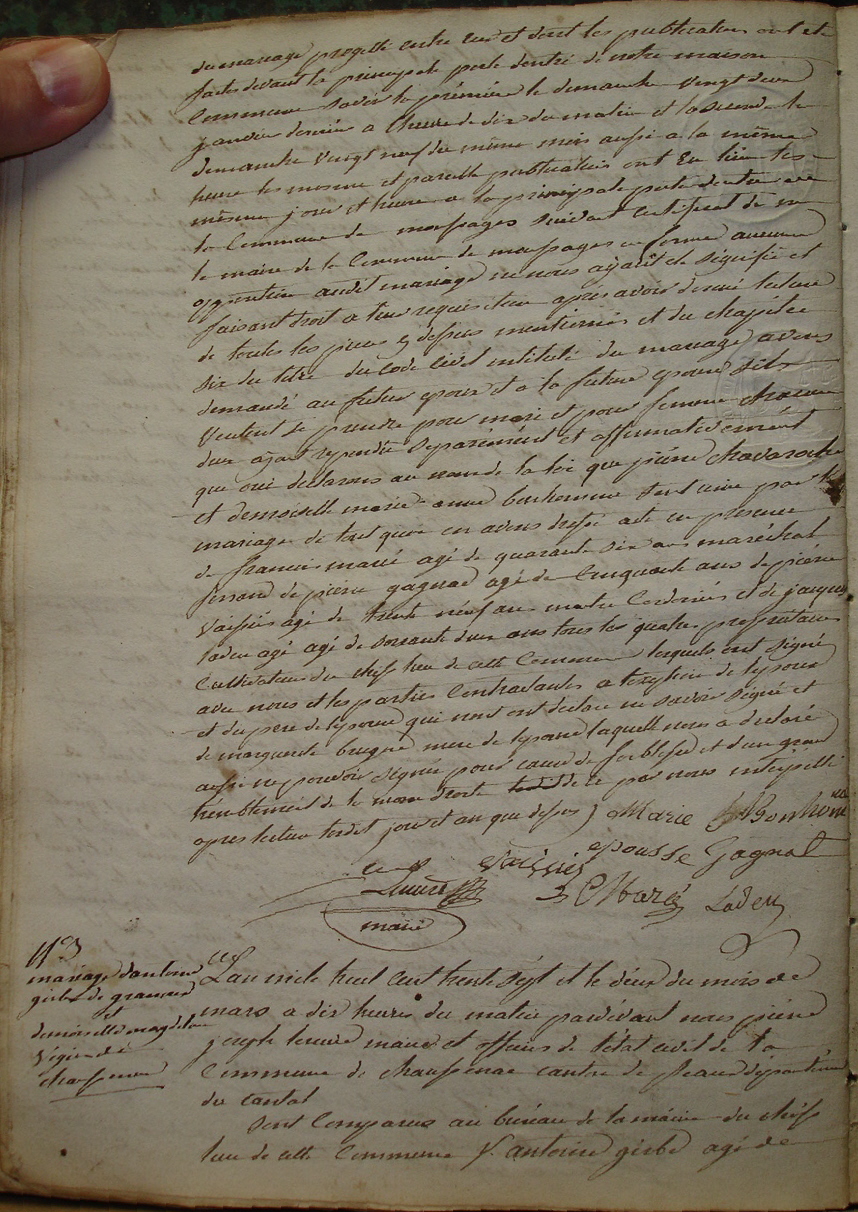 du mariage projetté entre eux et dont les publications ont été
faites devant la principale porte dentré de notre maison
Commune savoir la prémière le dimanche vingt deux
janvier dernier a lheure de dix du matin et la seconde le
dimanche vingt neuf du même mois aussi a la même
heure les mesme et pareille publications ont eu lieu les
mesme jour et heure a la principale porte dentrée de
la Commune de maussages suivant certificat de m
le maire de la Commune de maussages en forme aucune
opposition audit mariage ne nous ayant été signifiée et
faisant droit a leur requisition après avoir donné lecture
de toutes les pieces cy dessus mentionnées et du chapitre
six du titre du Code Civil intitulé du mariage avons
demandé au futur epoux et a la future epouse sils
veulent se prendre pour mari et pour femme chacun
deux ayant repondu separément et affirmativement
que oui declarons au nom de la loi que piérre chavaroche
et demoiselle marie anne bonhomme sont unis par le
mariage de tout quoi en avons dressé acte en presence
de francois marié agé de quarante six ans maréchal
ferrand de piérre gagnac agé de Cinquante ans de piérre
Vaissiés agé de trente neuf ans maitre Cordonier et de jacques
ladeu agé agé de soixante deux ans tous les quatre propriétaires
Cultivateurs du chef lieu de cette Commune lesquels ont signé
avec nous et les parties Contractantes a lexception de lepoux
et du pere de lepouse qui nont ont declaré ne savoir signer et
de marguerite brugne mere de lepouse laquelle nous a declaré
aussi ne pouvoir signer pour cause de foiblesse et dun grand
tremblement de la main droite de ce par nous interpellé
apres lecture lesdit jour et an que dessus Marie Bonhome
Vaissiés epousse Gagnal
Marié Ladeu
maire
N° 3
mariage dantoine
girbe de
et
demoiselle magdelaine
Vigier de
chaussenac
Lan mile huit cent trente sept et le deux du mois de
mars a dix heures du matin pardevant nous piérre
joseph maire et officier de létat civil de la
Commune de chaussenac canton de pleaux département
du cantal
Sont Comparus au bureau de la mairie du chéf
lieu de cette Commune s. antoine girbe agé de